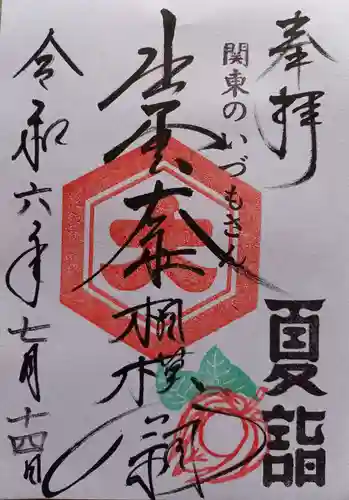 奉拝
関東のいづもさん
夏詣
出雲大社
相模分祠
令和六年七月十四日